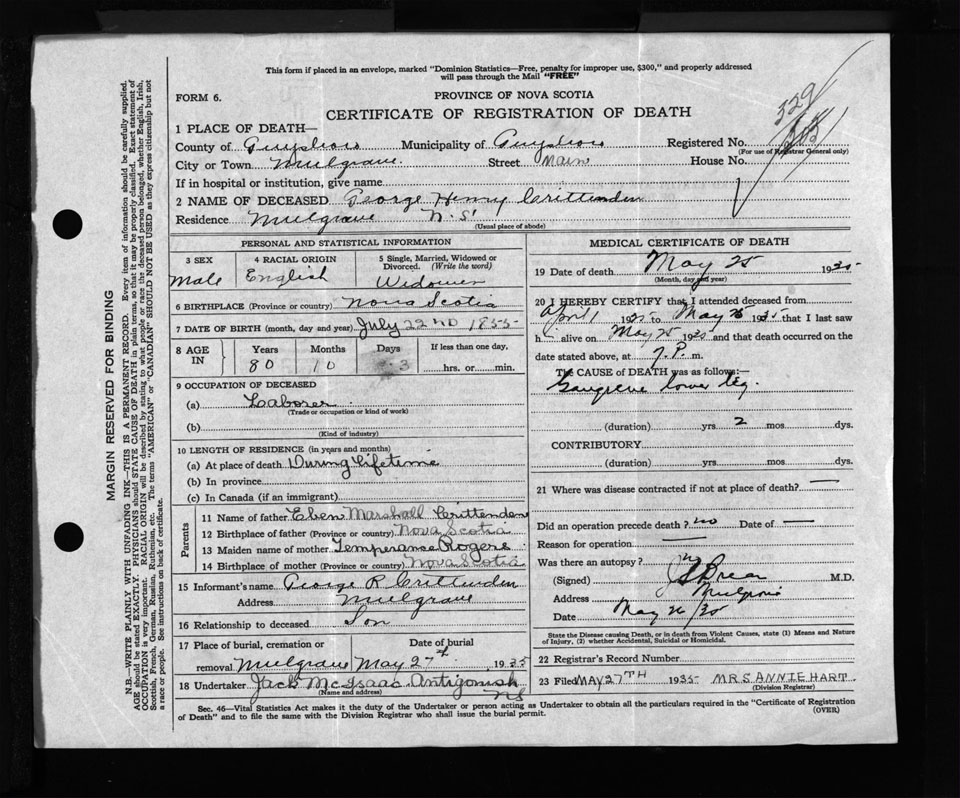 This form if placed in an envelope, marked "Dominion Statistics—Free, penalty for improper use, $300," and properly addressed
will pass through the Mail "FREE"
FORM 6.
PROVINCE OF NOVA SCOTIA
CERTIFICATE OF REGISTRATION OF DEATH
329
1 PLACE OF DEATH—
County of Guysboro Municipality of Guysboro Registered No.
(For use of Registrar General only)
City or Town Mulgrave Street Main House No.
If in hospital or institution, give name
2 NAME OF DECEASED George Henry Crittenden
Residence Mulgrave N.S.
(Usual place of abode)
PERSONAL AND STATISTICAL INFORMATION
3 SEX 4 RACIAL ORIGIN 5 Single, Married, Widowed or Divorced. (Write the word)
Male English Widower
6 BIRTHPLACE (Province or country) Nova Scotia
7 DATE OF BIRTH (month, day and year) July 22ND 1855
8 AGE IN Years Months Days If less than one day,
80 10 3 hrs. or min.
9 OCCUPATION OF DECEASED
(a) Laborer
(Trade or occupation or kind of work)
(b)
(Kind of industry)
10 LENGTH OF RESIDENCE (in years and months)
(a) At place of death During Lifetime
(b) In province
(c) In Canada (if an immigrant)
Parents
11 Name of father Eben Marshall Crittenden
12 Birthplace of father (Province or country) Nova Scotia
13 Maiden name of mother Temperanse Rogers
14 Birthplace of mother (Province or country) Nova Scotia
15 Informant's name George R Crittenden
Address Mulgrave
16 Relationship to deceased Son
17 Place of burial, cremation or Date of burial
removal Mulgrave May 27th 1935
18 Undertaker Jack McIsaac Antigonish
(Name and address) NS
MEDICAL CERTIFICATE OF DEATH
19 Date of death May 25 1935
(Month, day and year)
20 I HEREBY CERTIFY that I attended deceased from
April 1 1935 to May 25 1935 that I last saw
h i alive on May 25 1935 and that death occurred on the
date stated above, at 7.P. m.
The CAUSE of DEATH was as follows:—
Gangrene lower leg.
(duration) yrs. 2 mos dys.
CONTRIBUTORY
(duration) yrs. mos. dys.
21 Where was disease contracted if not at place of death? —
Did an operation precede death? no Date of —
Reason for operation —
Was there an autopsy? no
(Signed) M.D.
Address Mulgrave
Date May 26/35
State the Disease causing Death, or in death from Violent Causes, state (1) Means and Nature
of Injury, (2) whether Accidental, Suicidal or Homicidal.
22 Registrar's Record Number
23 Filed MAY 27TH 1935 MRS ANNIE HART
(Division Registrar)
Sec. 46—Vital Statistics Act makes it the duty of the Undertaker or person acting as Undertaker to obtain all the particulars required in the "Certificate of Registration
of Death" and to file the same with the Division Registrar who shall issue the burial permit.
(OVER)
MARGIN RESERVED FOR BINDING
N.B.—WRITE PLAINLY WITH UNFADING INK—THIS IS A PERMANENT RECORD. Every item of information should be carefully supplied.
AGE should be stated EXACTLY. PHYSICIANS should STATE CAUSE OF DEATH in plain terms, so that it may be properly classified. Exact statement of
OCCUPATION is very important. RACIAL ORIGIN will be described by stating to what people or race the deceased person belonged, whether English, Irish,
Scottish, French, German, Russian, Ruthenian, etc. The terms "AMERICAN" or "CANADIAN" SHOULD NOT BE USED as they express citizenship but not
a race or people. See instructions on back of certificate.